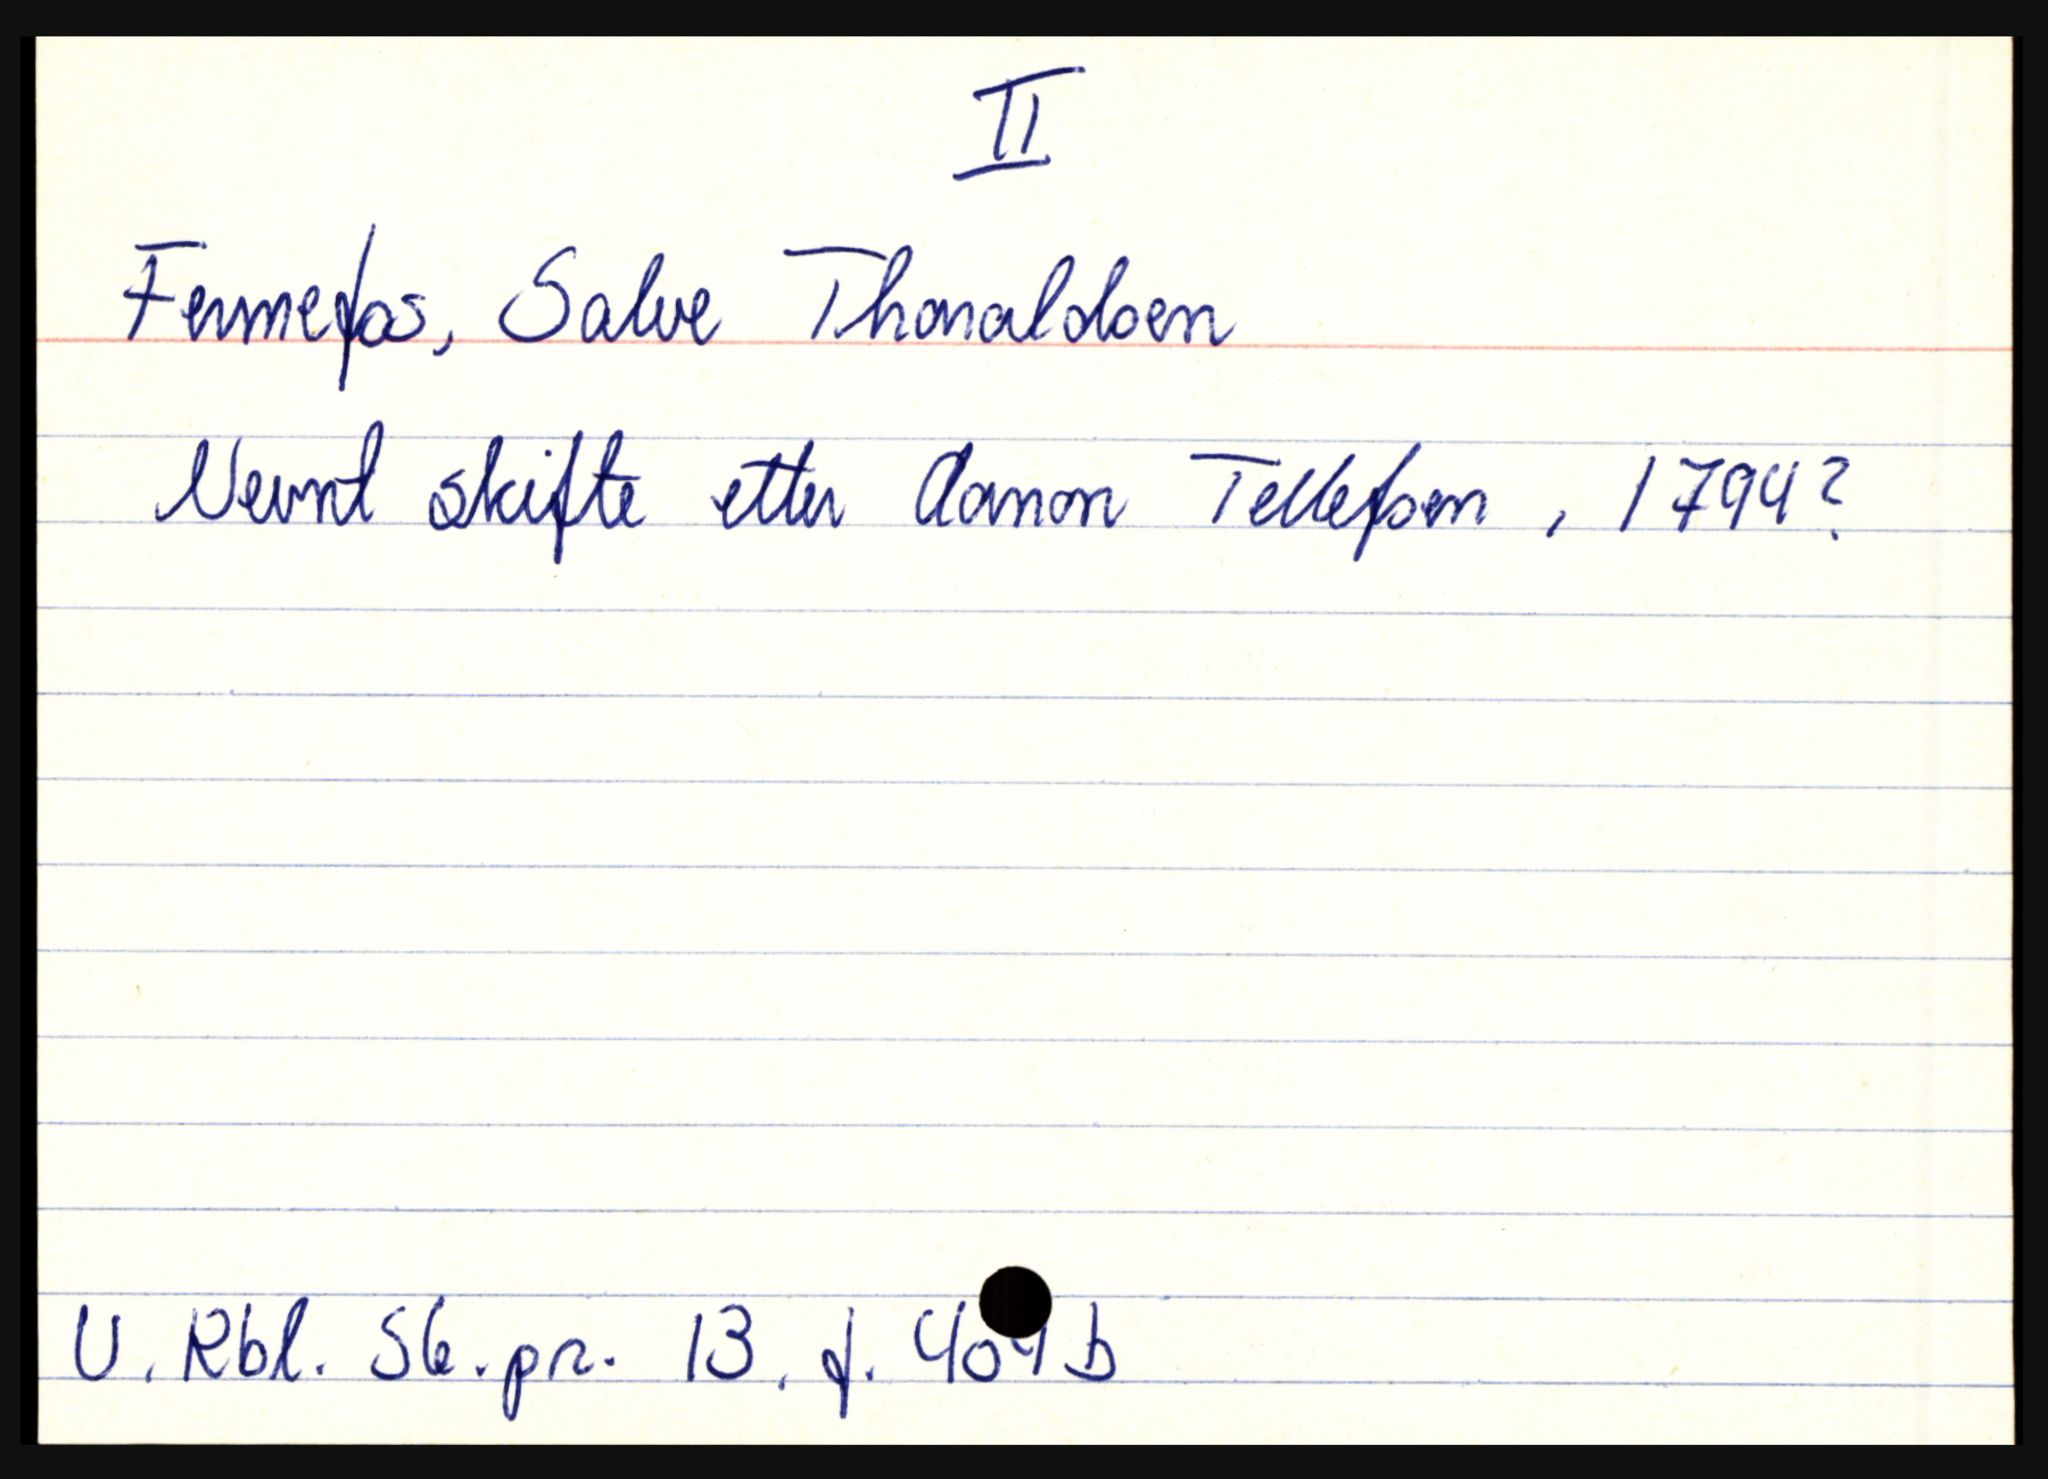 II
Fennefos, Salve Thoraldsen
Nevnt skifte etter Aanon Tellefsen, 1794?
U. Rbl. Sk.pr. 13, f. 404 b